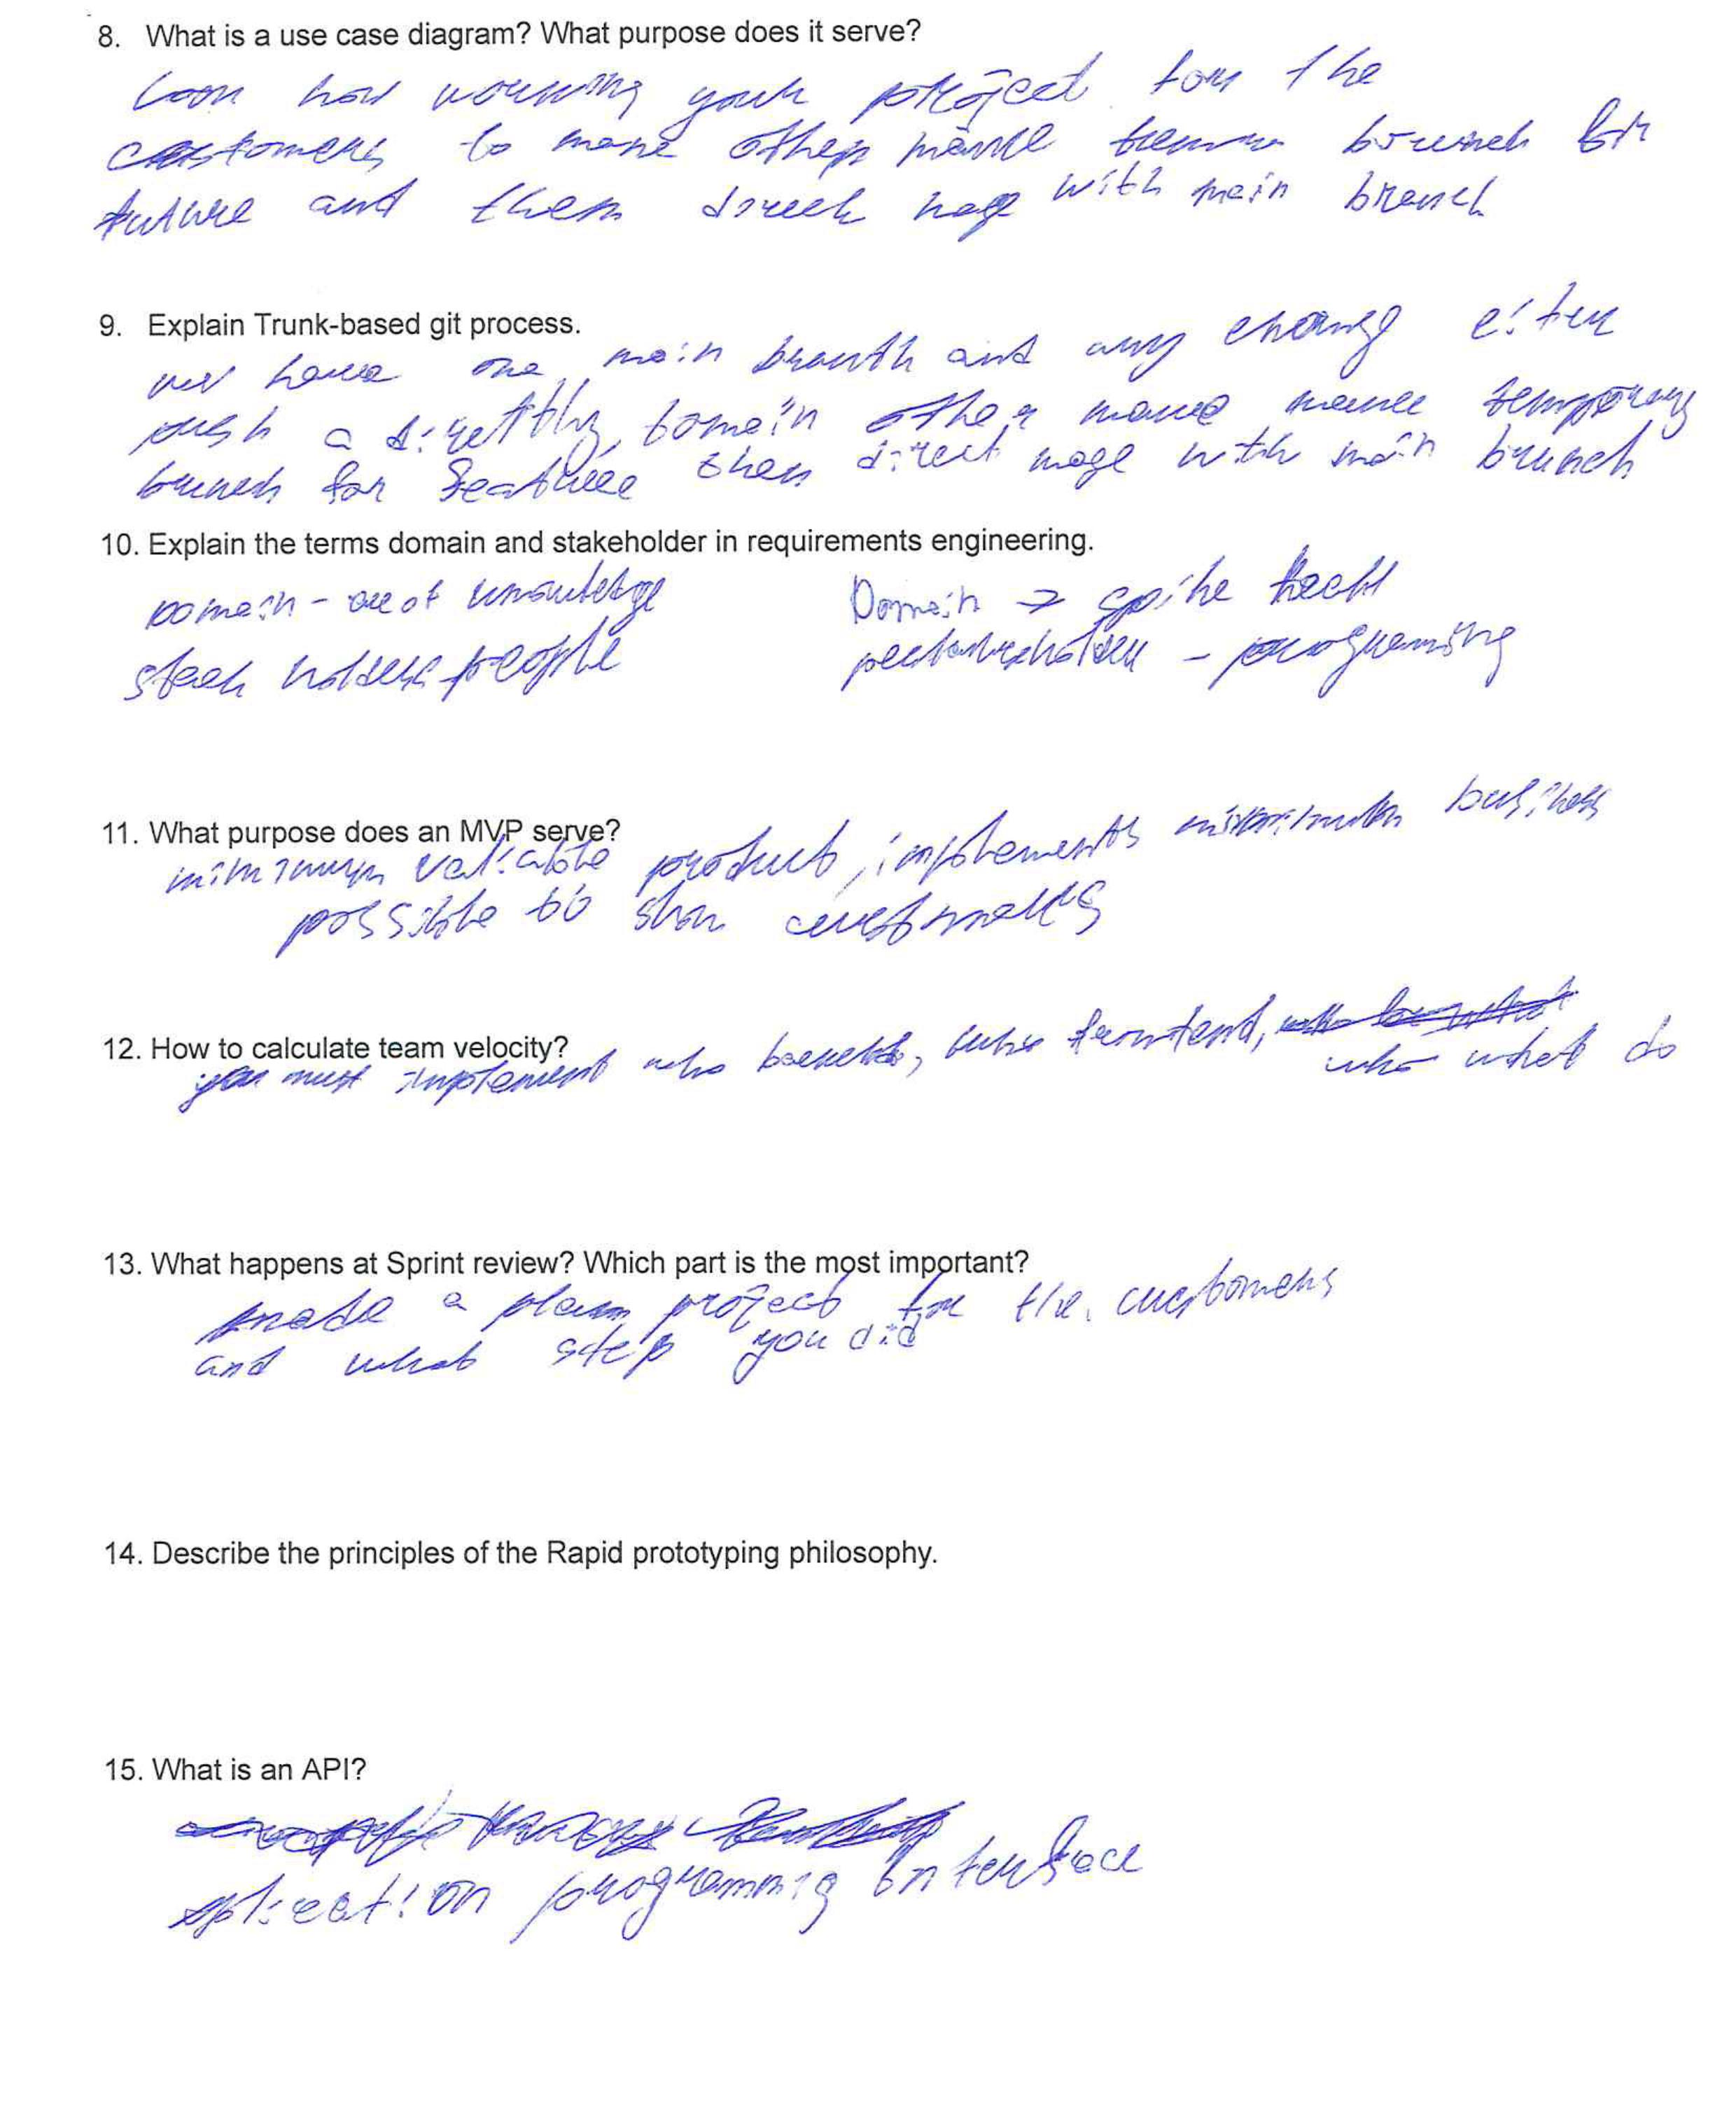 8. What is a use case diagram? What purpose does it serve?
how working your project for the
customers to make other branch for
future and then with main branch
9. Explain Trunk-based git process.
we have one main branth and any change eiter
push a diretthly tomain other temporary
brunch for feathure then direct mage with main brunch
10. Explain the terms domain and stakeholder in requirements engineering.
Domain - are of knowledge
Domain → spike
steak holders people
- programing
11. What purpose does an MVP serve?
minimum valiable product, implements minimum busines
possible to show customers
12. How to calculate team velocity?
you must implement who backend, who frontend,
who what do
13. What happens at Sprint review? Which part is the most important?
made a plan project for the customers
and what step you did
14. Describe the principles of the Rapid prototyping philosophy.
15. What is an API?
aplication programming interface